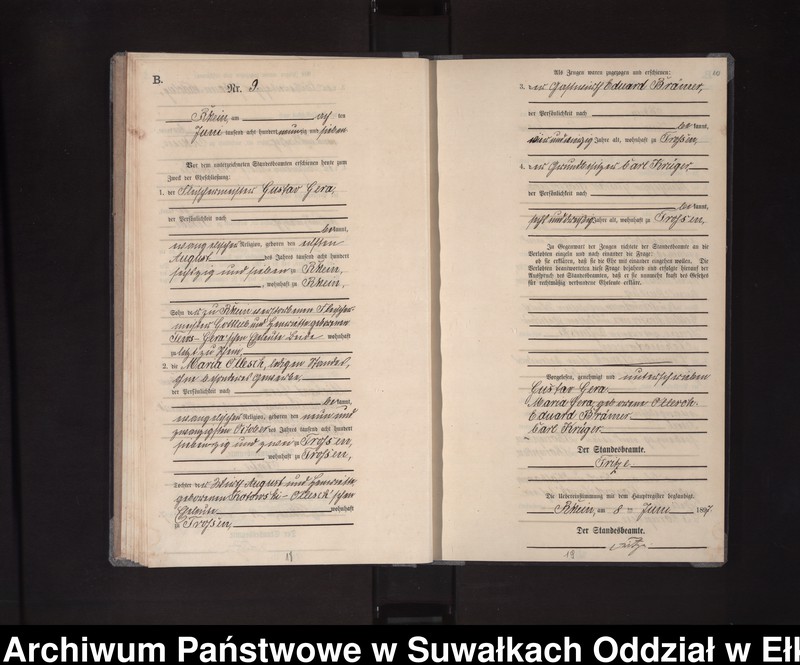 B.
Nr. 9
Rhein, am acht den
Juni tausend acht hundert neunzig und sieben
Vor dem unterzeichneten Standesbeamten erschienen heute zum
Zweck der Eheschließung:
1. der Fleischermeister Gustav Gera,
der Persönlichkeit nach
be kannt,
evangelischer Religion, geboren den elften
August des Jahres tausend acht hundert
sechzig und sieben zu Rhein,
, wohnhaft zu Rhein,
Sohn des zu Rhein verstorbenen Fleischer-
meisters Gottlieb und Henriette geborenen
Gera'schen Eheleute beide wohnhaft
zu letzt zu Rhein,
2. die Maria Olesch, ledigen Standes,
ohne besonderes Gewerbe,
der Persönlichkeit nach
be kannt,
evangelischer Religion, geboren den neun und
zwanzigsten October des Jahres tausend acht hundert
siebenzig und zu Trossen,
, wohnhaft zu Trossen,
Tochter des August und Henriette,
geborenen Kotowski-Olesch'schen
Eheleute wohnhaft
zu Trossen,
Als Zeugen waren zugezogen und erschienen:
3. der Gastwirth Eduard Brämer,
der Persönlichkeit nach
be kannt,
und dreizig Jahre alt, wohnhaft zu Trossen,
4. der Grundbesitzer Carl Krüger
der Persönlichkeit nach
be kannt,
und dreißig Jahre alt, wohnhaft zu Trossen,
In Gegenwart der Zeugen richtete der Standesbeamte an die
Verlobten einzeln und nach einander die Frage:
ob sie erklären, daß sie die Ehe mit einander eingehen wollen. Die
Verlobten beantworteten diese Frage bejahend und erfolgte hierauf der
Ausspruch des Standesbeamten, daß er sie nunmehr kraft des Gesetzes
für rechtmäßig verbundene Eheleute erkläre.
Vorgelesen, genehmigt und unterschrieben
Gustav Gera
Maria Gera, geborene Olesch
Eduard Brämer
Carl Krüger
Der Standesbeamte.
Fritze
Die Uebereinstimmung mit dem Hauptregister beglaubigt.
Rhein, am 8 ten Juni 1897
Der Standesbeamte.
Fritze
19
Archiwum Państwowe w Suwałkach Oddział w Ełk